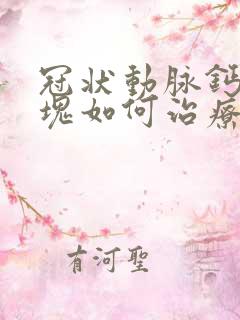 冠状動脉鈣
塊如何治療
有河聖